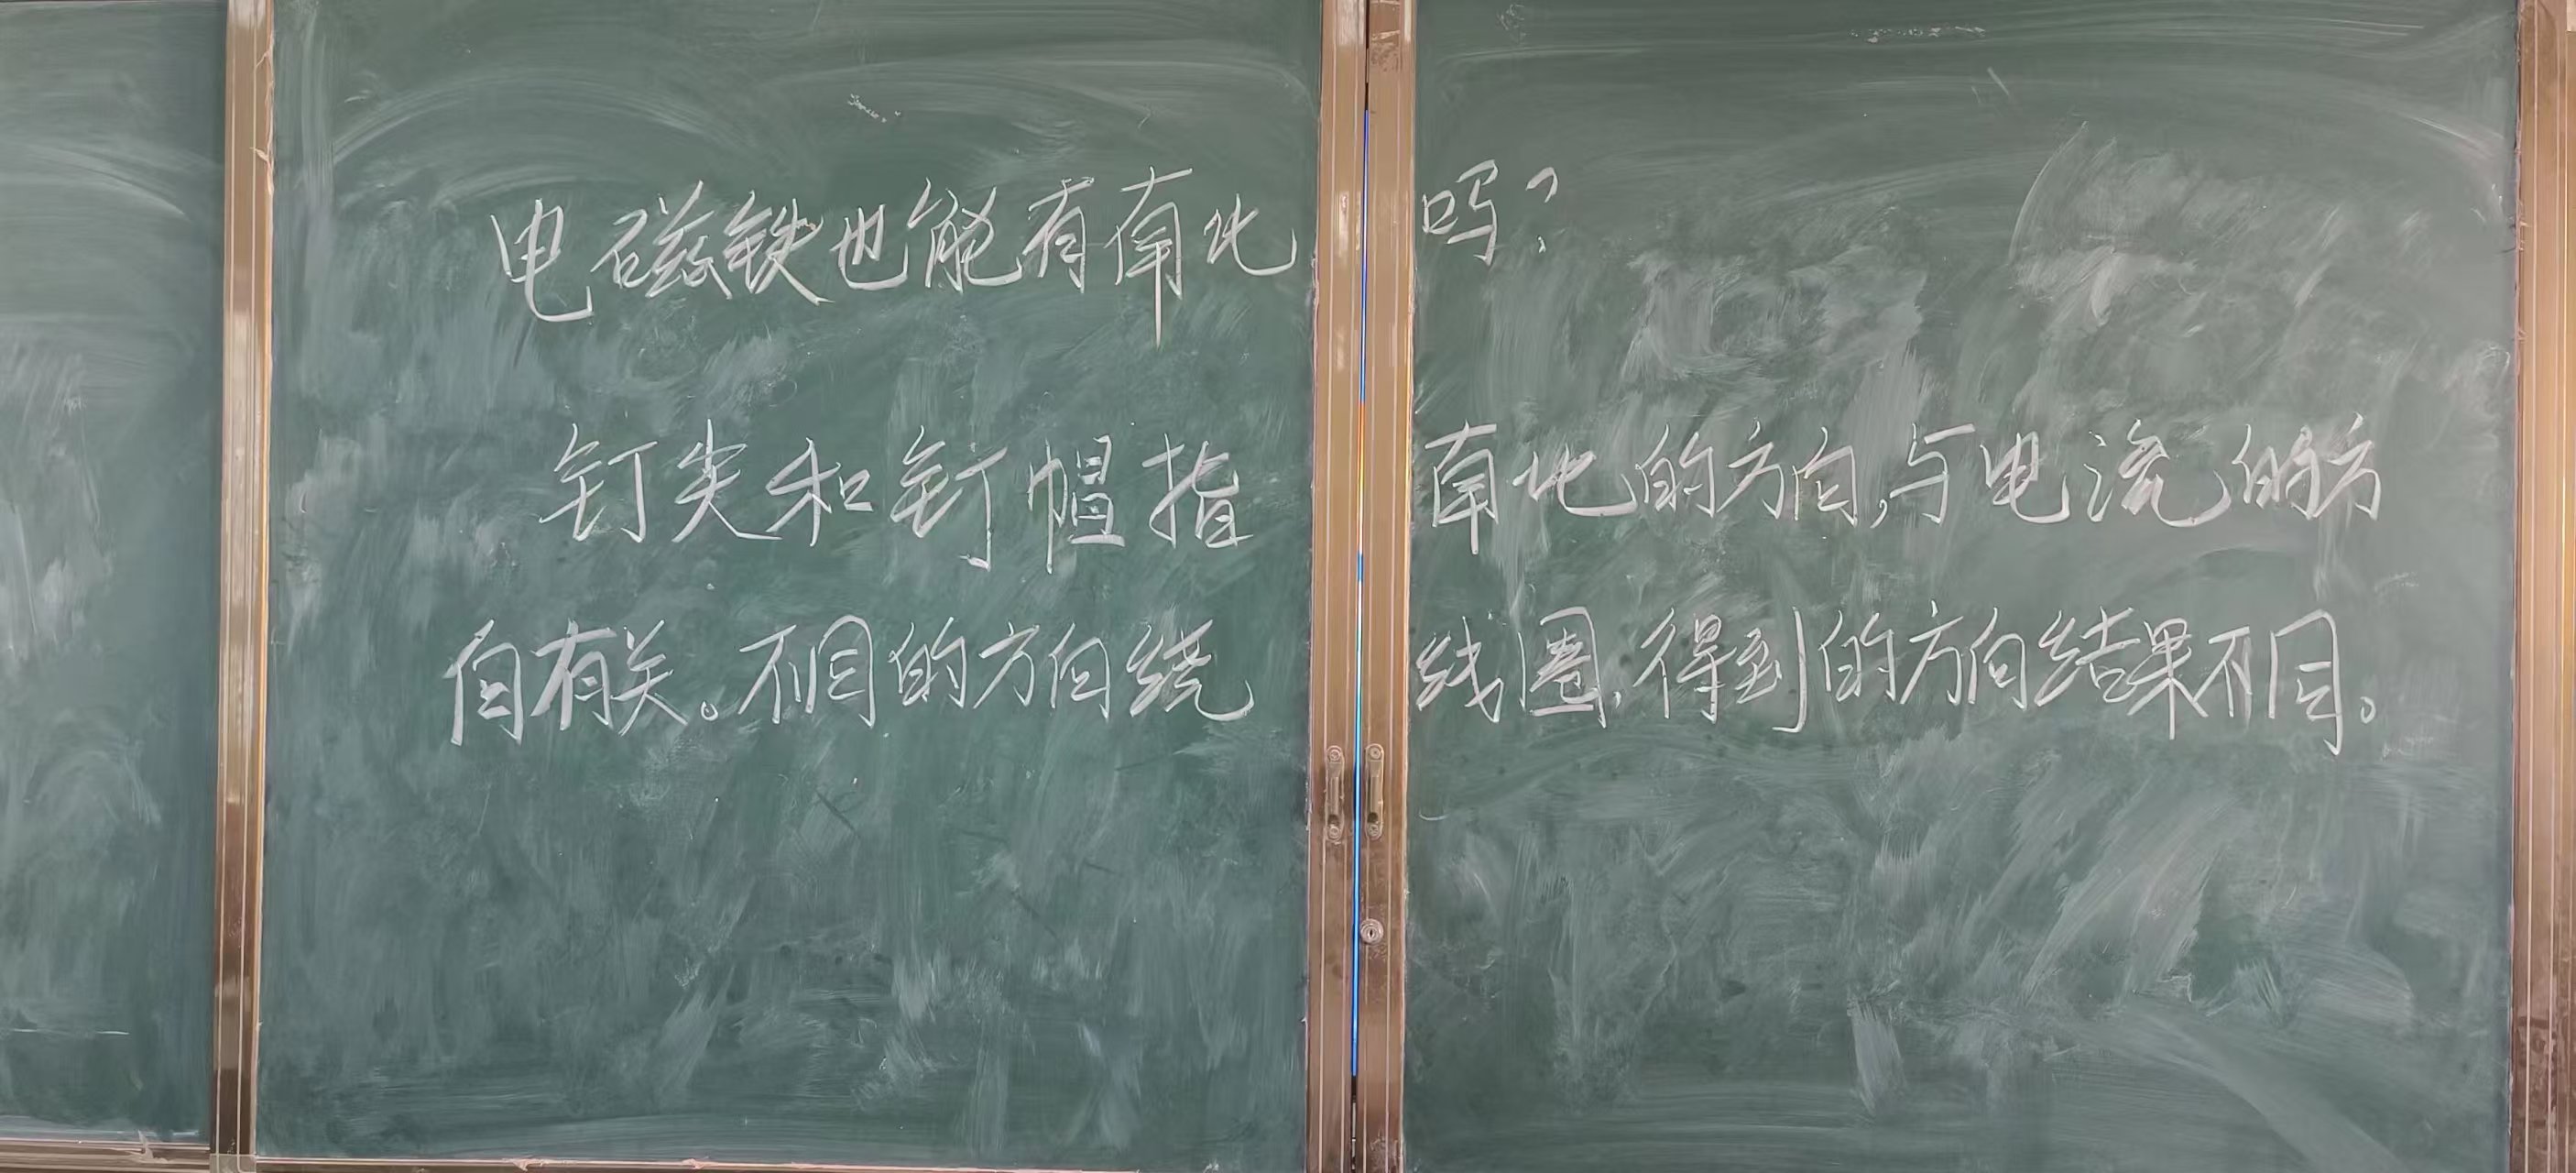 电磁铁也能有南北吗？
钉尖和钉帽指南北的方向,与电流的方
向有关。不同的方向绕线圈,得到的方向结果不同。